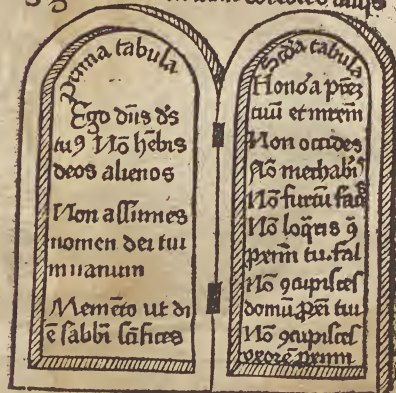 Prima tabula
Ego dñs ds
tuꝰ Nõ hẽbis
deos alienos
Non assumes
nomen dei tui
in uanum
Memẽto ut di
ẽ sabbi sc̃ifices
Scd̃a tabula
Honoꝛa pr̃eꝫ
tuũ et mr̃em
Non occides
Nõ mechab
Nõ furtũ fac
Nõ loq̃ris ꝯ
pꝛximũ tuũ fal
Nõ ꝯcupisces
domũ pꝛxĩ tui
Nõ ꝯcupisces
vxoꝛẽ pꝛximi